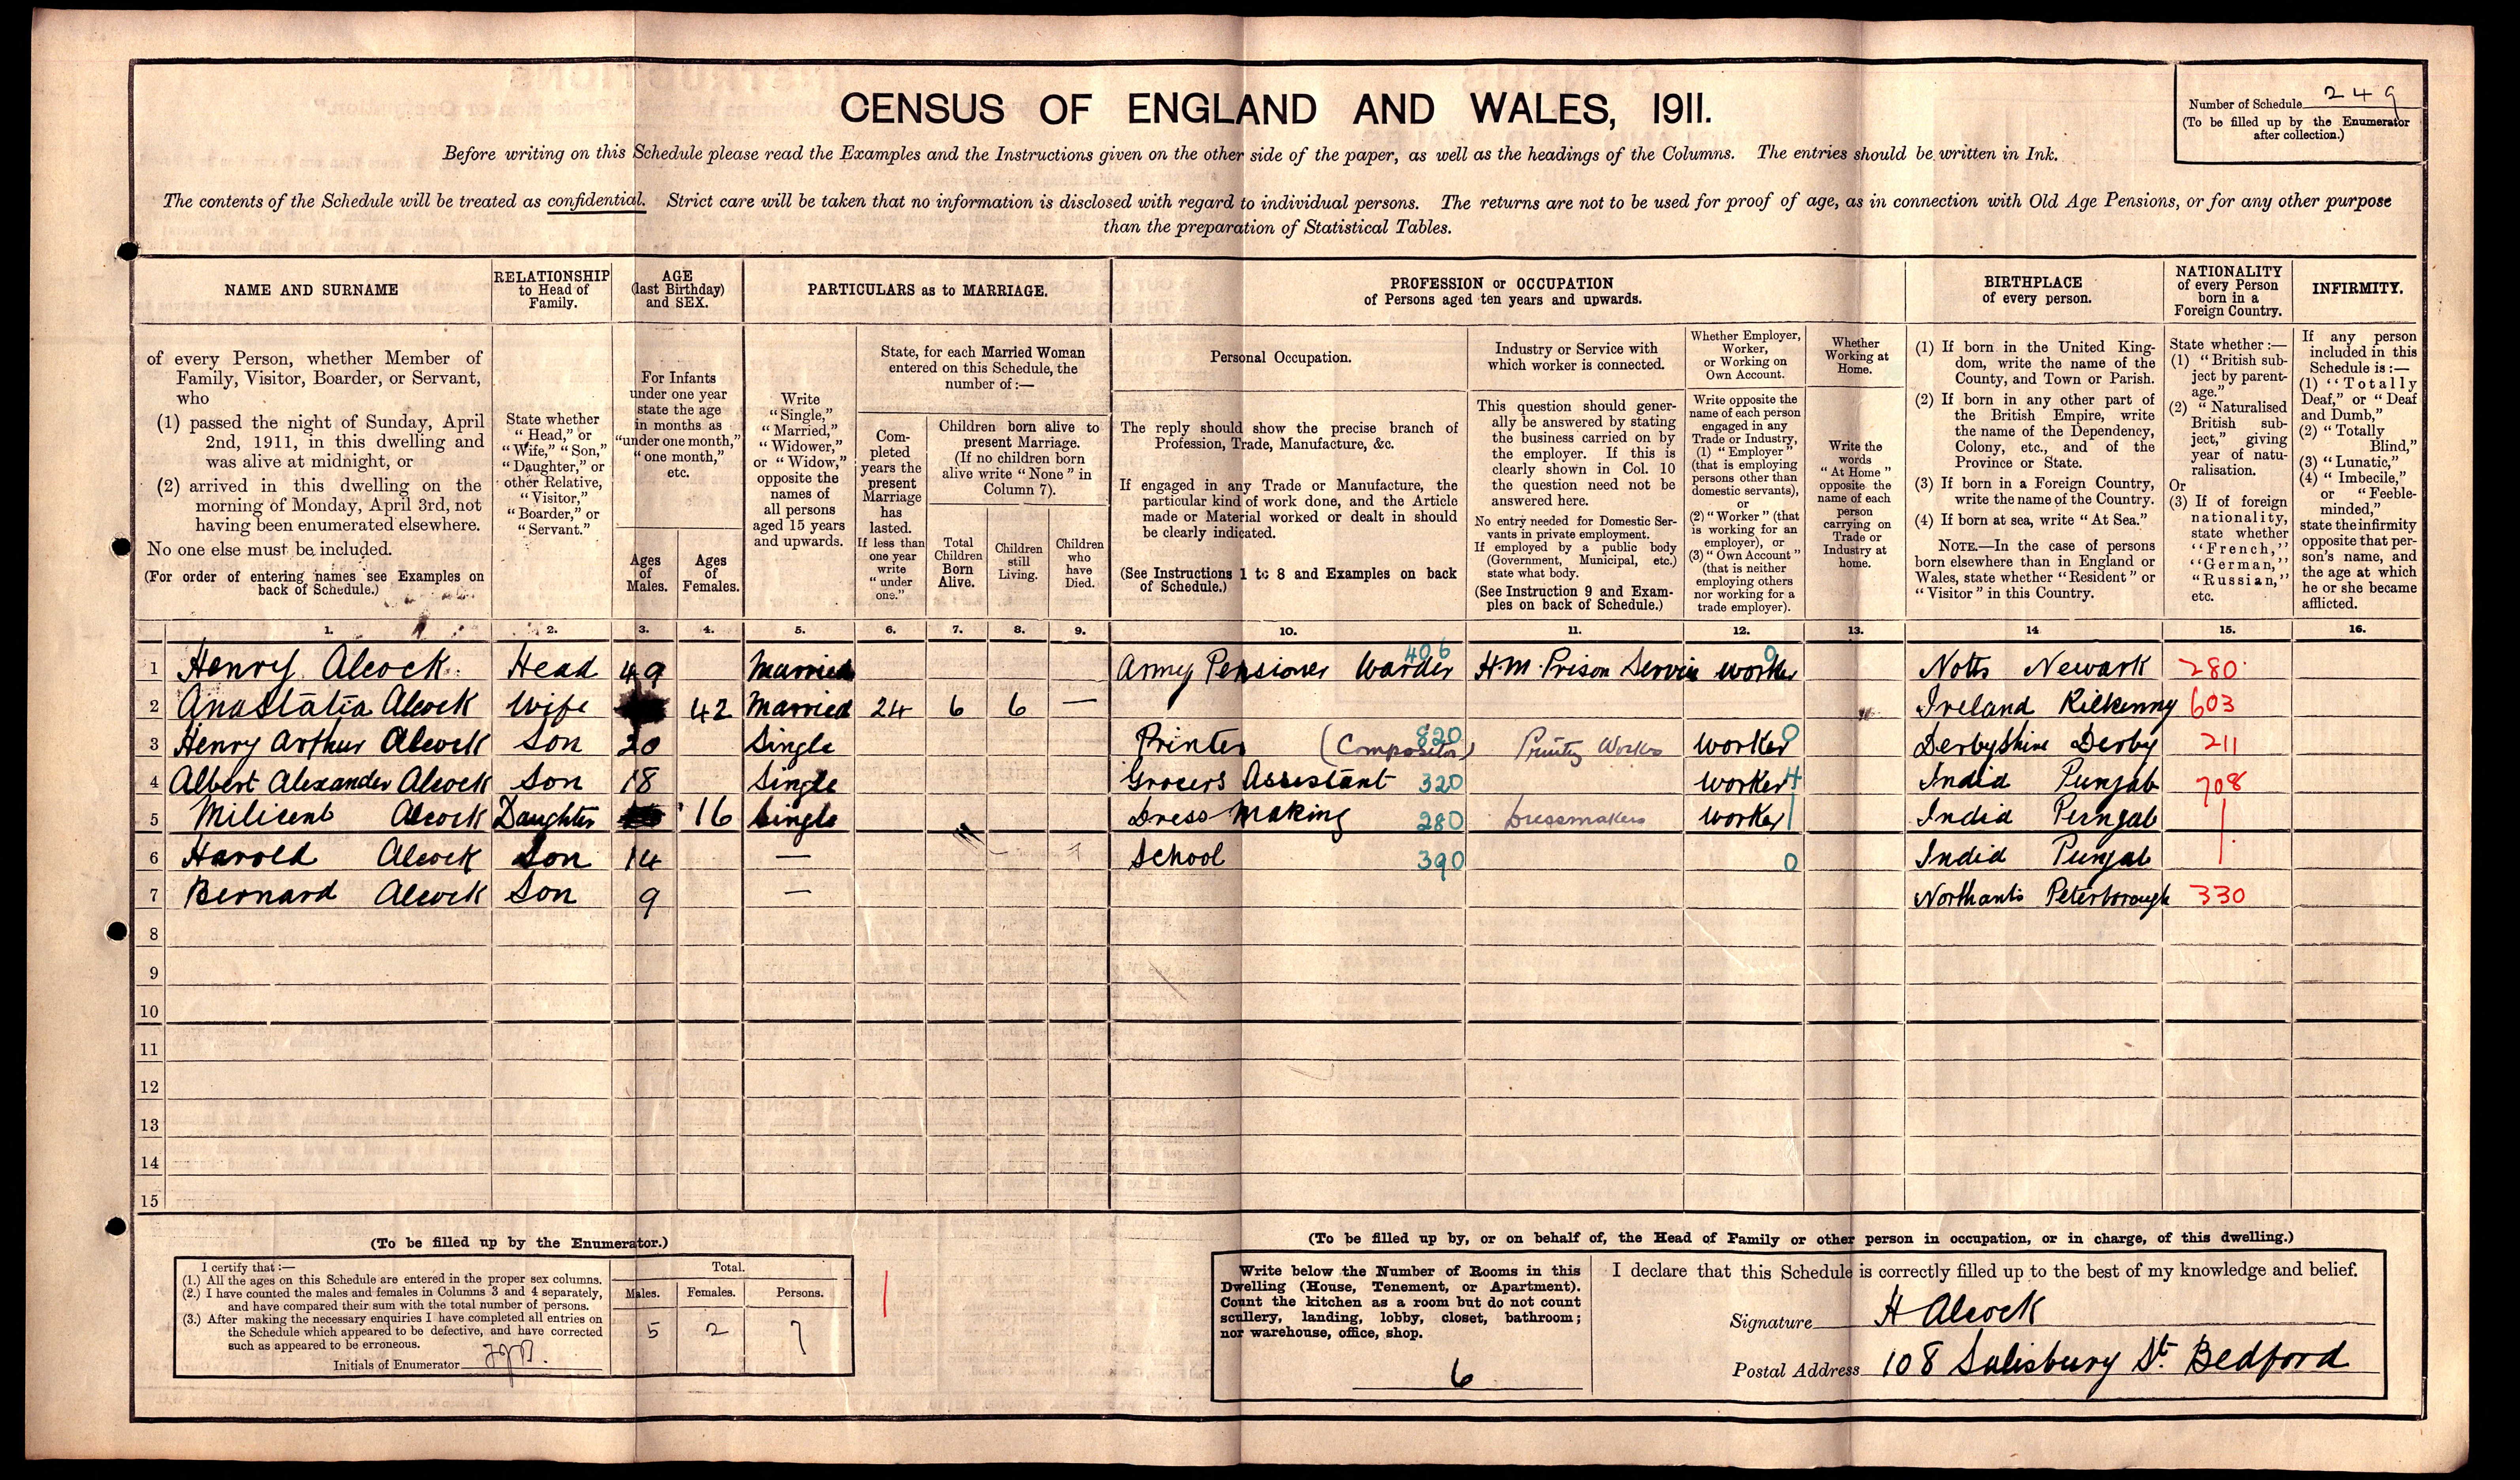 CENSUS OF ENGLAND AND WALES, 1911.
Number of Schedule 249
(To be filled up by the Enumerator
after collection.)
Before writing on this Schedule please read the Examples and the Instructions given on the other side of the paper, as well as the headings of the Columns. The entries should be written in Ink.
The contents of the Schedule will be treated as confidential. Strict care will be taken that no information is disclosed with regard to individual persons. The returns are not to be used for proof of age, as in connection with Old Age Pensions, or for any other purpose
than the preparation of Statistical Tables.
NAME AND SURNAME
of every Person, whether Member of
Family, Visitor, Boarder, or Servant,
who
(1) passed the night of Sunday, April
2nd, 1911, in this dwelling and
was alive at midnight, or
(2) arrived in this dwelling on the
morning of Monday, April 3rd, not
having been enumerated elsewhere.
No one else must be included.
(For order of entering names see Examples on
back of Schedule.)
RELATIONSHIP
to Head of
Family.
State whether
"Head," or
"Wife," "Son,"
"Daughter," or
other Relative,
"Visitor,"
"Boarder," or
"Servant."
AGE
(last Birthday)
and SEX.
For Infants
under one year
state the age
in months as
"under one month,"
"one month,"
etc.
Ages
of
Males.
Ages
of
Females.
PARTICULARS as to MARRIAGE.
Write
"Single,"
"Married,"
"Widower,"
or "Widow,"
opposite the
names of
all persons
aged 15 years
and upwards.
State, for each Married Woman
entered on this Schedule, the
number of:—
Com-
pleted
years the
present
Marriage
has
lasted.
If less than
one year
write
"under
one."
Children born alive to
present Marriage.
(If no children born
alive write "None" in
Column 7).
Total
Children
Born
Alive.
Children
still
Living.
Children
who
have
Died.
PROFESSION or OCCUPATION
of Persons aged ten years and upwards.
Personal Occupation.
The reply should show the precise branch of
Profession, Trade, Manufacture, &c.
If engaged in any Trade or Manufacture, the
particular kind of work done, and the Article
made or Material worked or dealt in should
be clearly indicated.
(See Instructions 1 to 8 and Examples on back
of Schedule.)
Industry or Service with
which worker is connected.
This question should gener-
ally be answered by stating
the business carried on by
the employer. If this is
clearly shown in Col. 10
the question need not be
answered here.
No entry needed for Domestic Ser-
vants in private employment.
If employed by a public body
(Government, Municipal, etc.)
state what body.
(See Instruction 9 and Exam-
ples on back of Schedule.)
Whether Employer,
Worker,
or Working on
Own Account.
Write opposite the
name of each person
engaged in any
Trade or Industry,
(1) "Employer"
(that is employing
persons other than
domestic servants),
or
(2) "Worker" (that
is working for an
employer), or
(3) "Own Account"
(that is neither
employing others
nor working for a
trade employer).
Whether
Working at
Home.
Write the
words
"At Home"
opposite the
name of each
person
carrying on
Trade or
Industry at
home.
BIRTHPLACE
of every person.
(1) If born in the United King-
dom, write the name of the
County, and Town or Parish.
(2) If born in any other part of
the British Empire, write
the name of the Dependency,
Colony, etc., and of the
Province or State.
(3) If born in a Foreign Country,
write the name of the Country.
(4) If born at sea, write "At Sea."
NOTE.—In the case of persons
born elsewhere than in England or
Wales, state whether "Resident" or
"Visitor" in this Country.
NATIONALITY
of every Person
born in a
Foreign Country.
State whether:—
(1) "British sub-
ject by parent-
age."
(2) "Naturalised
British sub-
ject," giving
year of natu-
ralisation.
Or
(3) If of foreign
nationality,
state whether
"French,"
"German,"
"Russian,"
etc.
INFIRMITY.
If any person
included in this
Schedule is:—
(1) "Totally
Deaf," or "Deaf
and Dumb,"
(2) "Totally
Blind,"
(3) "Lunatic,"
(4) "Imbecile,"
or "Feeble-
minded,"
state the infirmity
opposite that per-
son's name, and
the age at which
he or she became
afflicted.
1. 2. 3. 4. 5. 6. 7. 8. 9. 10. 11. 12. 13. 14. 15. 16.
1 Henry Alcock Head 49 Married Army Pensioner Warder 406 H.M. Prison Service Worker 0 Notts Newark 280
2 Anastatia Alcock Wife 42 Married 24 6 6 — Ireland Kilkenny 603
3 Henry Arthur Alcock Son 20 Single Printer (Compositor) 820 Printing Works Worker 0 Derbyshire Derby 211
4 Albert Alexander Alcock Son 18 Single Grocers Assistant 320 Worker 4 India Punjab 708
5 Milicent Alcock Daughter 16 Single Dress Making 280 Dressmakers Worker 1 India Punjab
6 Harold Alcock Son 14 — School 390 0 India Punjab
7 Bernard Alcock Son 9 — Northants Peterborough 330
8
9
10
11
12
13
14
15
(To be filled up by the Enumerator.)
I certify that:—
(1.) All the ages on this Schedule are entered in the proper sex columns.
(2.) I have counted the males and females in Columns 3 and 4 separately,
and have compared their sum with the total number of persons.
(3.) After making the necessary enquiries I have completed all entries on
the Schedule which appeared to be defective, and have corrected
such as appeared to be erroneous.
Initials of Enumerator
Total.
Males. Females. Persons.
5 2 7
(To be filled up by, or on behalf of, the Head of Family or other person in occupation, or in charge, of this dwelling.)
Write below the Number of Rooms in this
Dwelling (House, Tenement, or Apartment).
Count the kitchen as a room but do not count
scullery, landing, lobby, closet, bathroom;
nor warehouse, office, shop.
6
I declare that this Schedule is correctly filled up to the best of my knowledge and belief.
Signature H Alcock
Postal Address 108 Salisbury St. Bedford